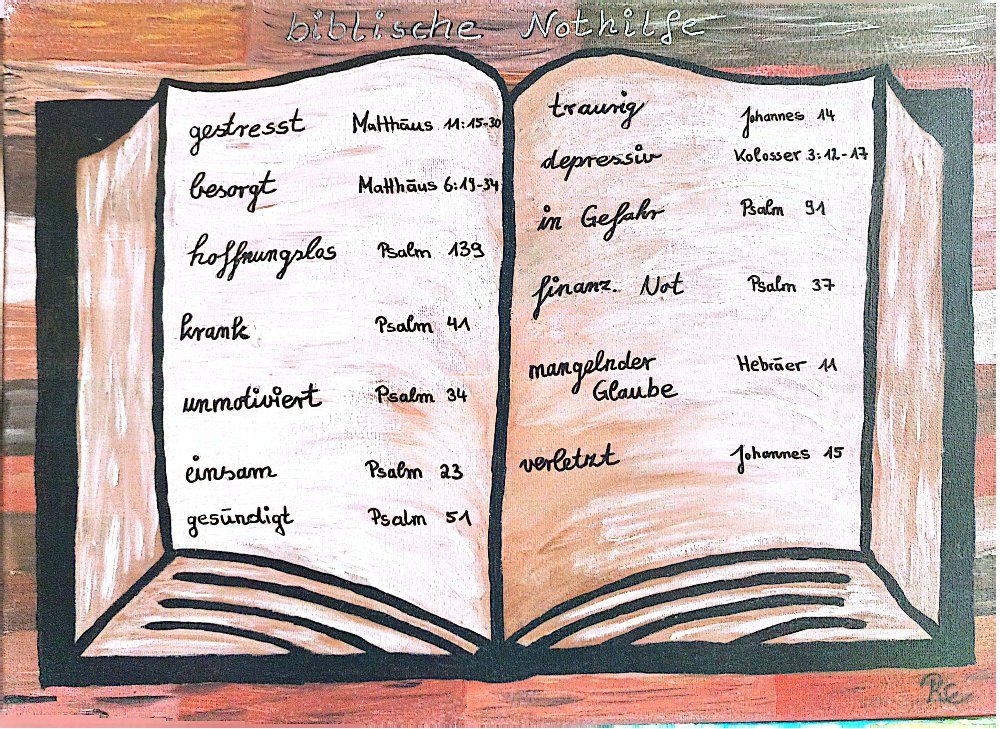 biblische Nothilfe
gestresst Matthäus 11:15-30
besorgt Matthäus 6:19-34
hoffnungslos Psalm 139
krank Psalm 41
unmotiviert Psalm 34
einsam Psalm 23
gesündigt Psalm 51
traurig Johannes 14
depressiv Kolosser 3:12-17
in Gefahr Psalm 91
finanz. Not Psalm 37
mangelnder Hebräer 11
Glaube
verletzt Johannes 15